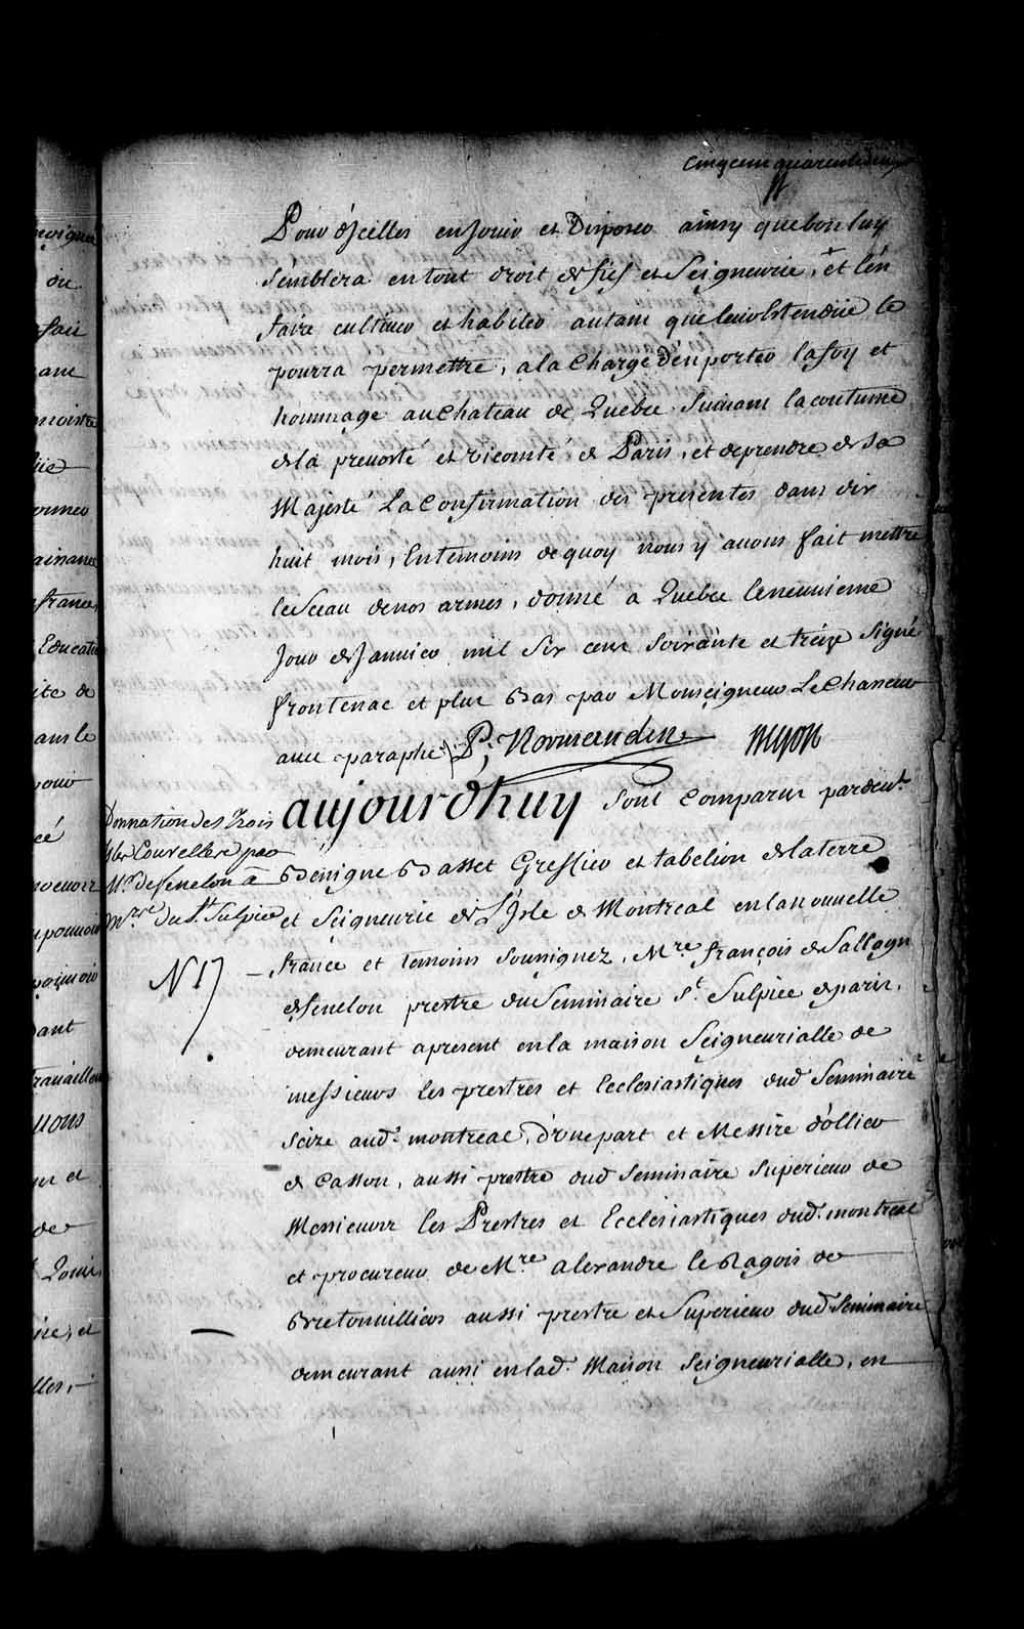 Cinq cent quarente deux
Pour d'jcelles en Jouir et Disposer ainsy que bon luy
semblera en tout droit de fief et Seigneurie, et L'en
faire cultiver et habiter autant que leur Estendüe le
pourra permettre, a la Charge d'en porter la foy et
hommage au Chateau de Quebec suivant la coutume
de la prevosté et vicomté de Paris, et de prendre de Sa
Majesté La Confirmation des presentes dans dix
huit mois, En temoins de quoy nous y avons fait mettre
le Sceau de nos armes, donné a Quebec le neuvieme
Jour de Janvier mil six cent soixante et treize signé
frontenac et plus Bas par Monseigneur Le Chasseur
avec paraphe. P. Normandin
aujourd'huy sont comparus pardevt.
Donnation des trois
Isles Courcelle par
Mr. de fenelon à
Mrs. du St. Sulpice
N 17
Benigne Basset Greffier et tabelion de la terre
et Seigneurie de L'Isle de Montreal en la nouvelle
france et temoins soussignez, Mre. françois de Sallagn
de fenelon prestre du Seminaire St. Sulpice de paris,
demeurant a present en la maison Seigneurialle de
messieurs les prestres et Ecclesiastiques dud. Seminaire
scize aud. montreal, d'une part et Messire d'ollier
de Casson, aussi prestre dud Seminaire Superieur de
Messieurs les Prestres et Ecclesiastiques dud. montreal
et procureur de Mre. alexandre le Ragois de
Bretonvilliers aussi prestre et Superieur dud Seminaire
demeurant aussi en lad. Maison Seigneurialle, en